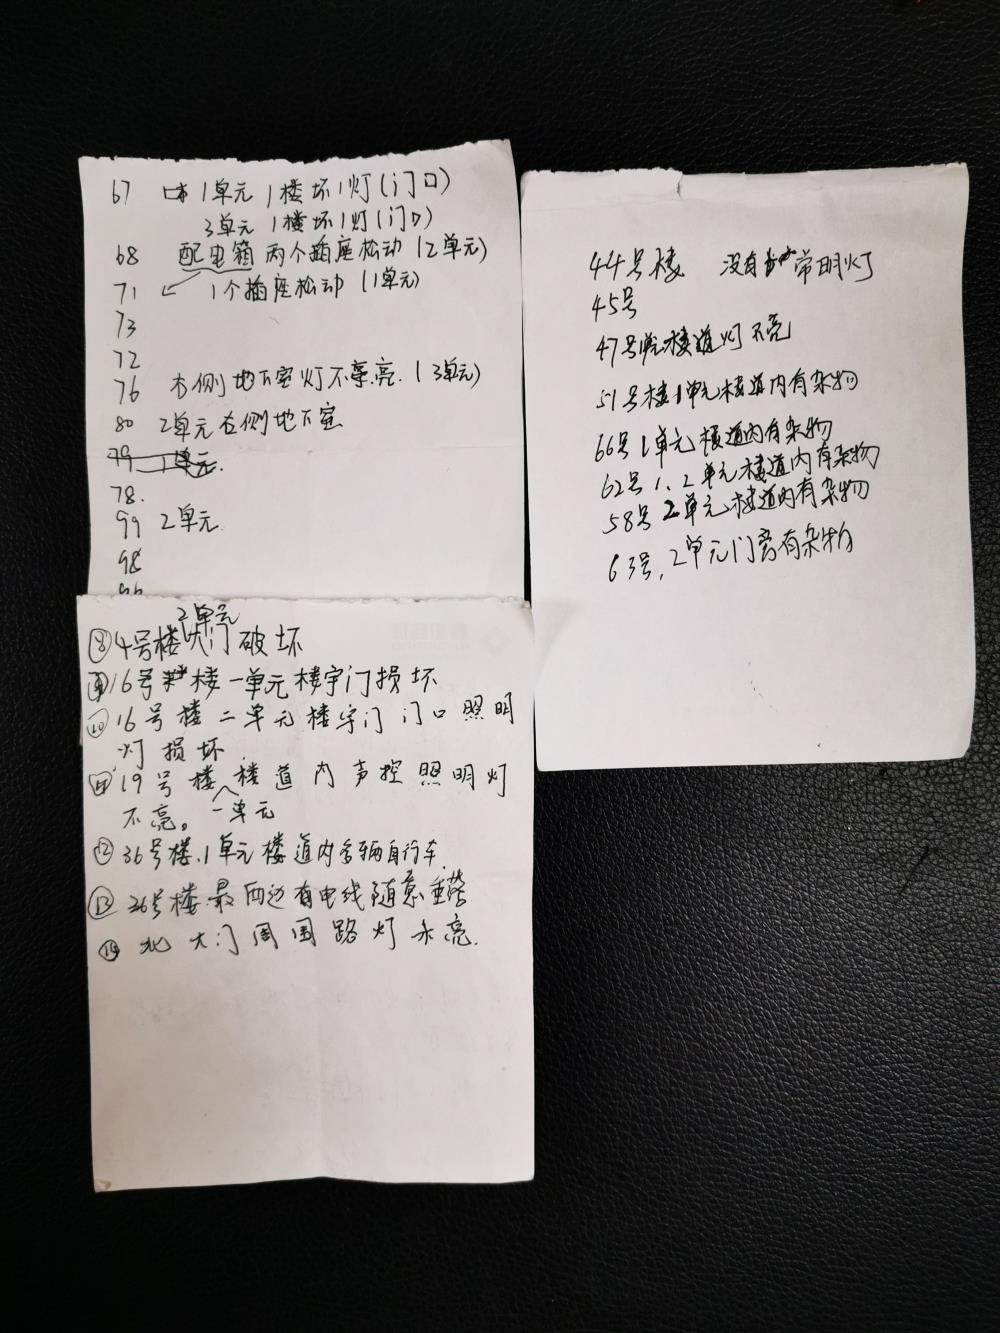 67 1单元 1楼坏1灯(门口)
3单元 1楼坏1灯(门口)
68 配电箱 两个插座松动 (2单元)
71 1个插座松动 (1单元)
73
72
76 右侧地下室灯不亮. (3单元)
80 2单元右侧地下室
79 1单元.
78.
99 2单元
98
96
2单元
⑧ 4号楼大门破坏
16号楼一单元楼宇门损坏
⑩ 16号楼二单元楼宇门门口照明
灯损坏
19号楼楼道内声控照明灯
不亮。一单元
⑫ 36号楼.1单元楼道内多辆自行车.
⑬ 36号楼最西边有电线随意垂落
⑭ 北大门周围路灯未亮.
44号楼 没有常明灯
45号
47号1单元楼道灯不亮
51号楼1单元楼道内有杂物
66号1单元楼道内有杂物
62号1、2单元楼道内有杂物
58号2单元楼道内有杂物
63号,2单元门旁有杂物